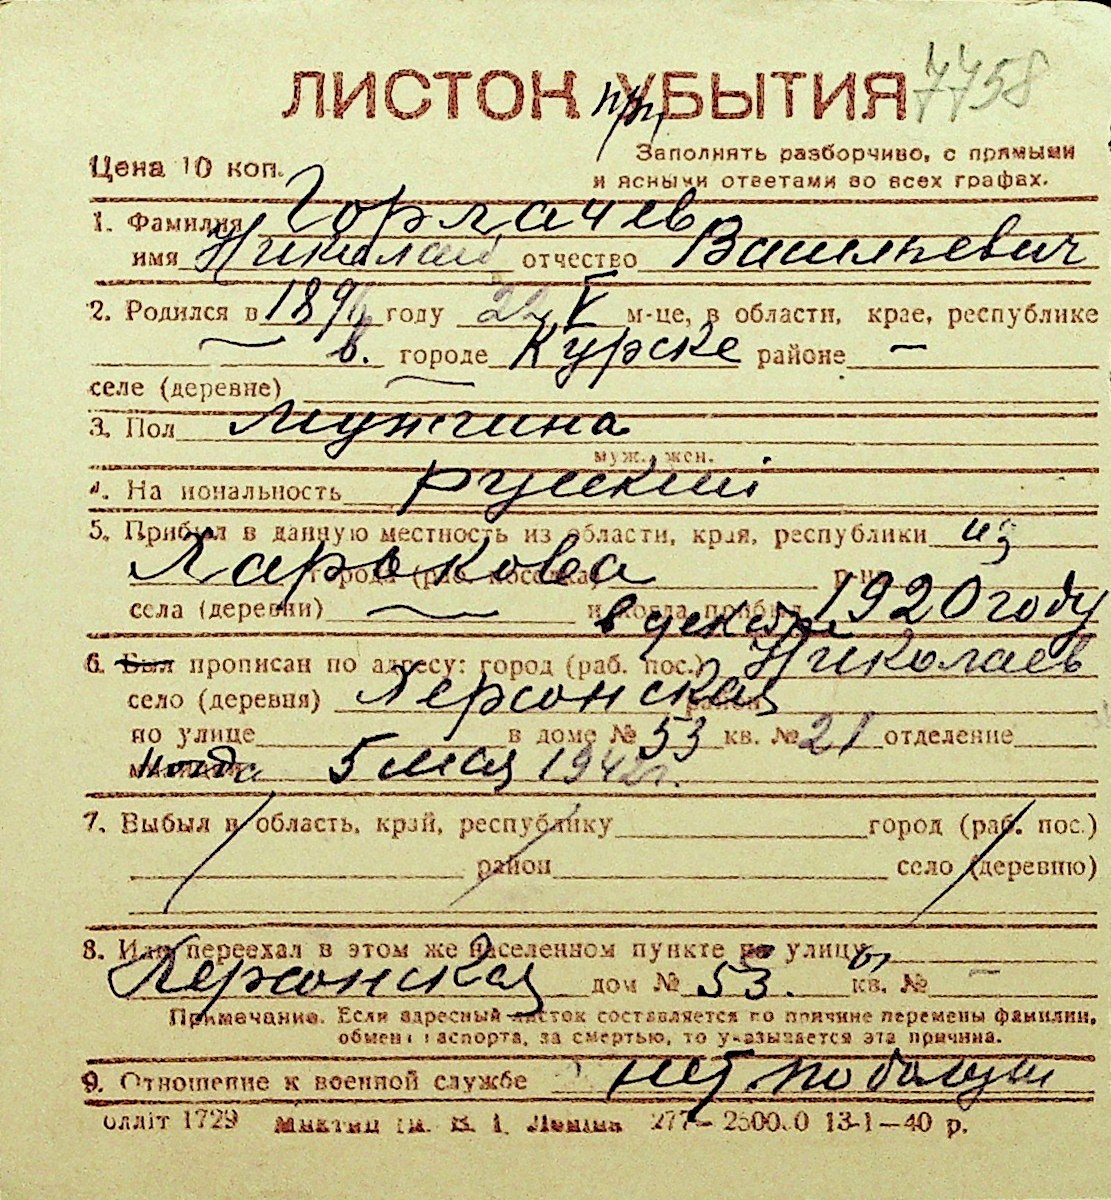 ЛИСТОК УБЫТИЯ 7758
при
Цена 10 коп.
Заполнять разборчиво, с прямыми
и ясными ответами во всех графах.
1. Фамилия Горлачев
имя Николай отчество Васильевич
2. Родился в году 22 V м-це, в области, крае, республике
в. городе Курске районе —
селе (деревне)
3. Пол Мужчина
муж., жен.
На иональность русский
5. Прибыл в данную местность из области, края, республики из
Харькова города (раб. поселка) р-на
села (деревни) и когда прибыл 1920 году
в декабре
6. Был прописан по адресу: город (раб. пос.) Николаев
село (деревня) Херсонская район
по улице в доме № 53 кв. № 21 отделение
когда 5 мая 1942 г.
7. Выбыл в область, край, республику город (раб. пос.)
район село (деревню)
8. Или переехал в этом же населенном пункте по улицу
Херсонская дом № 53. кв. № —
Примечание. Если адресный листок составляется по причине перемены фамилии,
обмена паспорта, за смертью, то указывается эта причина.
9. Отношение к военной службе нет
олліт 1729 277— 13-1—40 р.